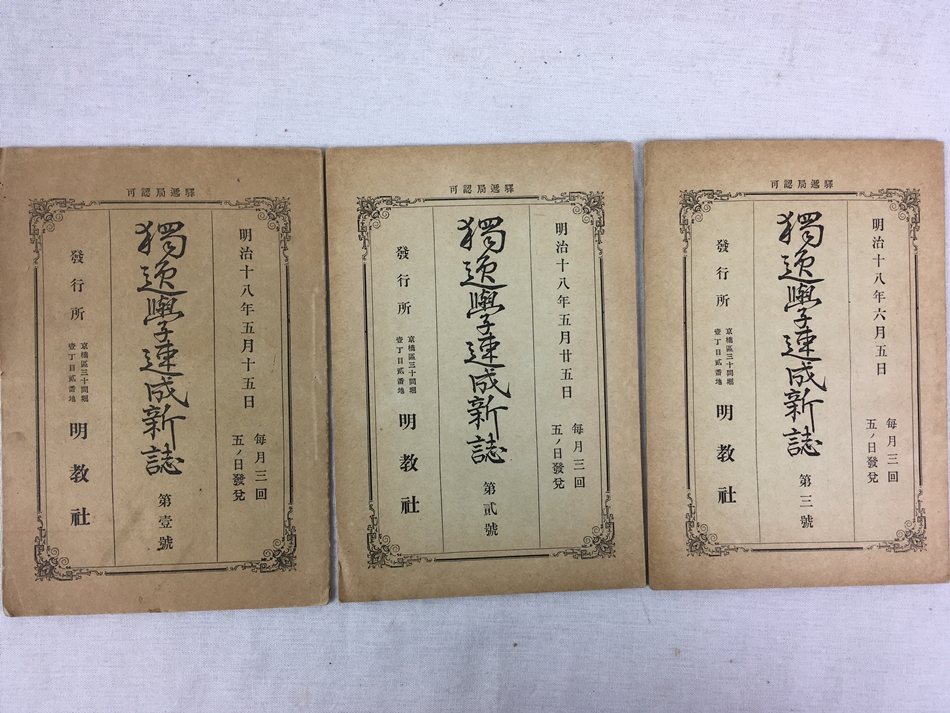 驛遞局認可
明治十八年五月十五日
毎月三回
五ノ日發兌
獨逸學速成新誌 第壹號
發行所
京橋區三十間堀
壹丁目貳番地
明教社
驛遞局認可
明治十八年五月廿五日
毎月三回
五ノ日發兌
獨逸學速成新誌 第貳號
發行所
京橋區三十間堀
壹丁目貳番地
明教社
驛遞局認可
明治十八年六月五日
毎月三回
五ノ日發兌
獨逸學速成新誌 第三號
發行所
京橋區三十間堀
壹丁目貳番地
明教社